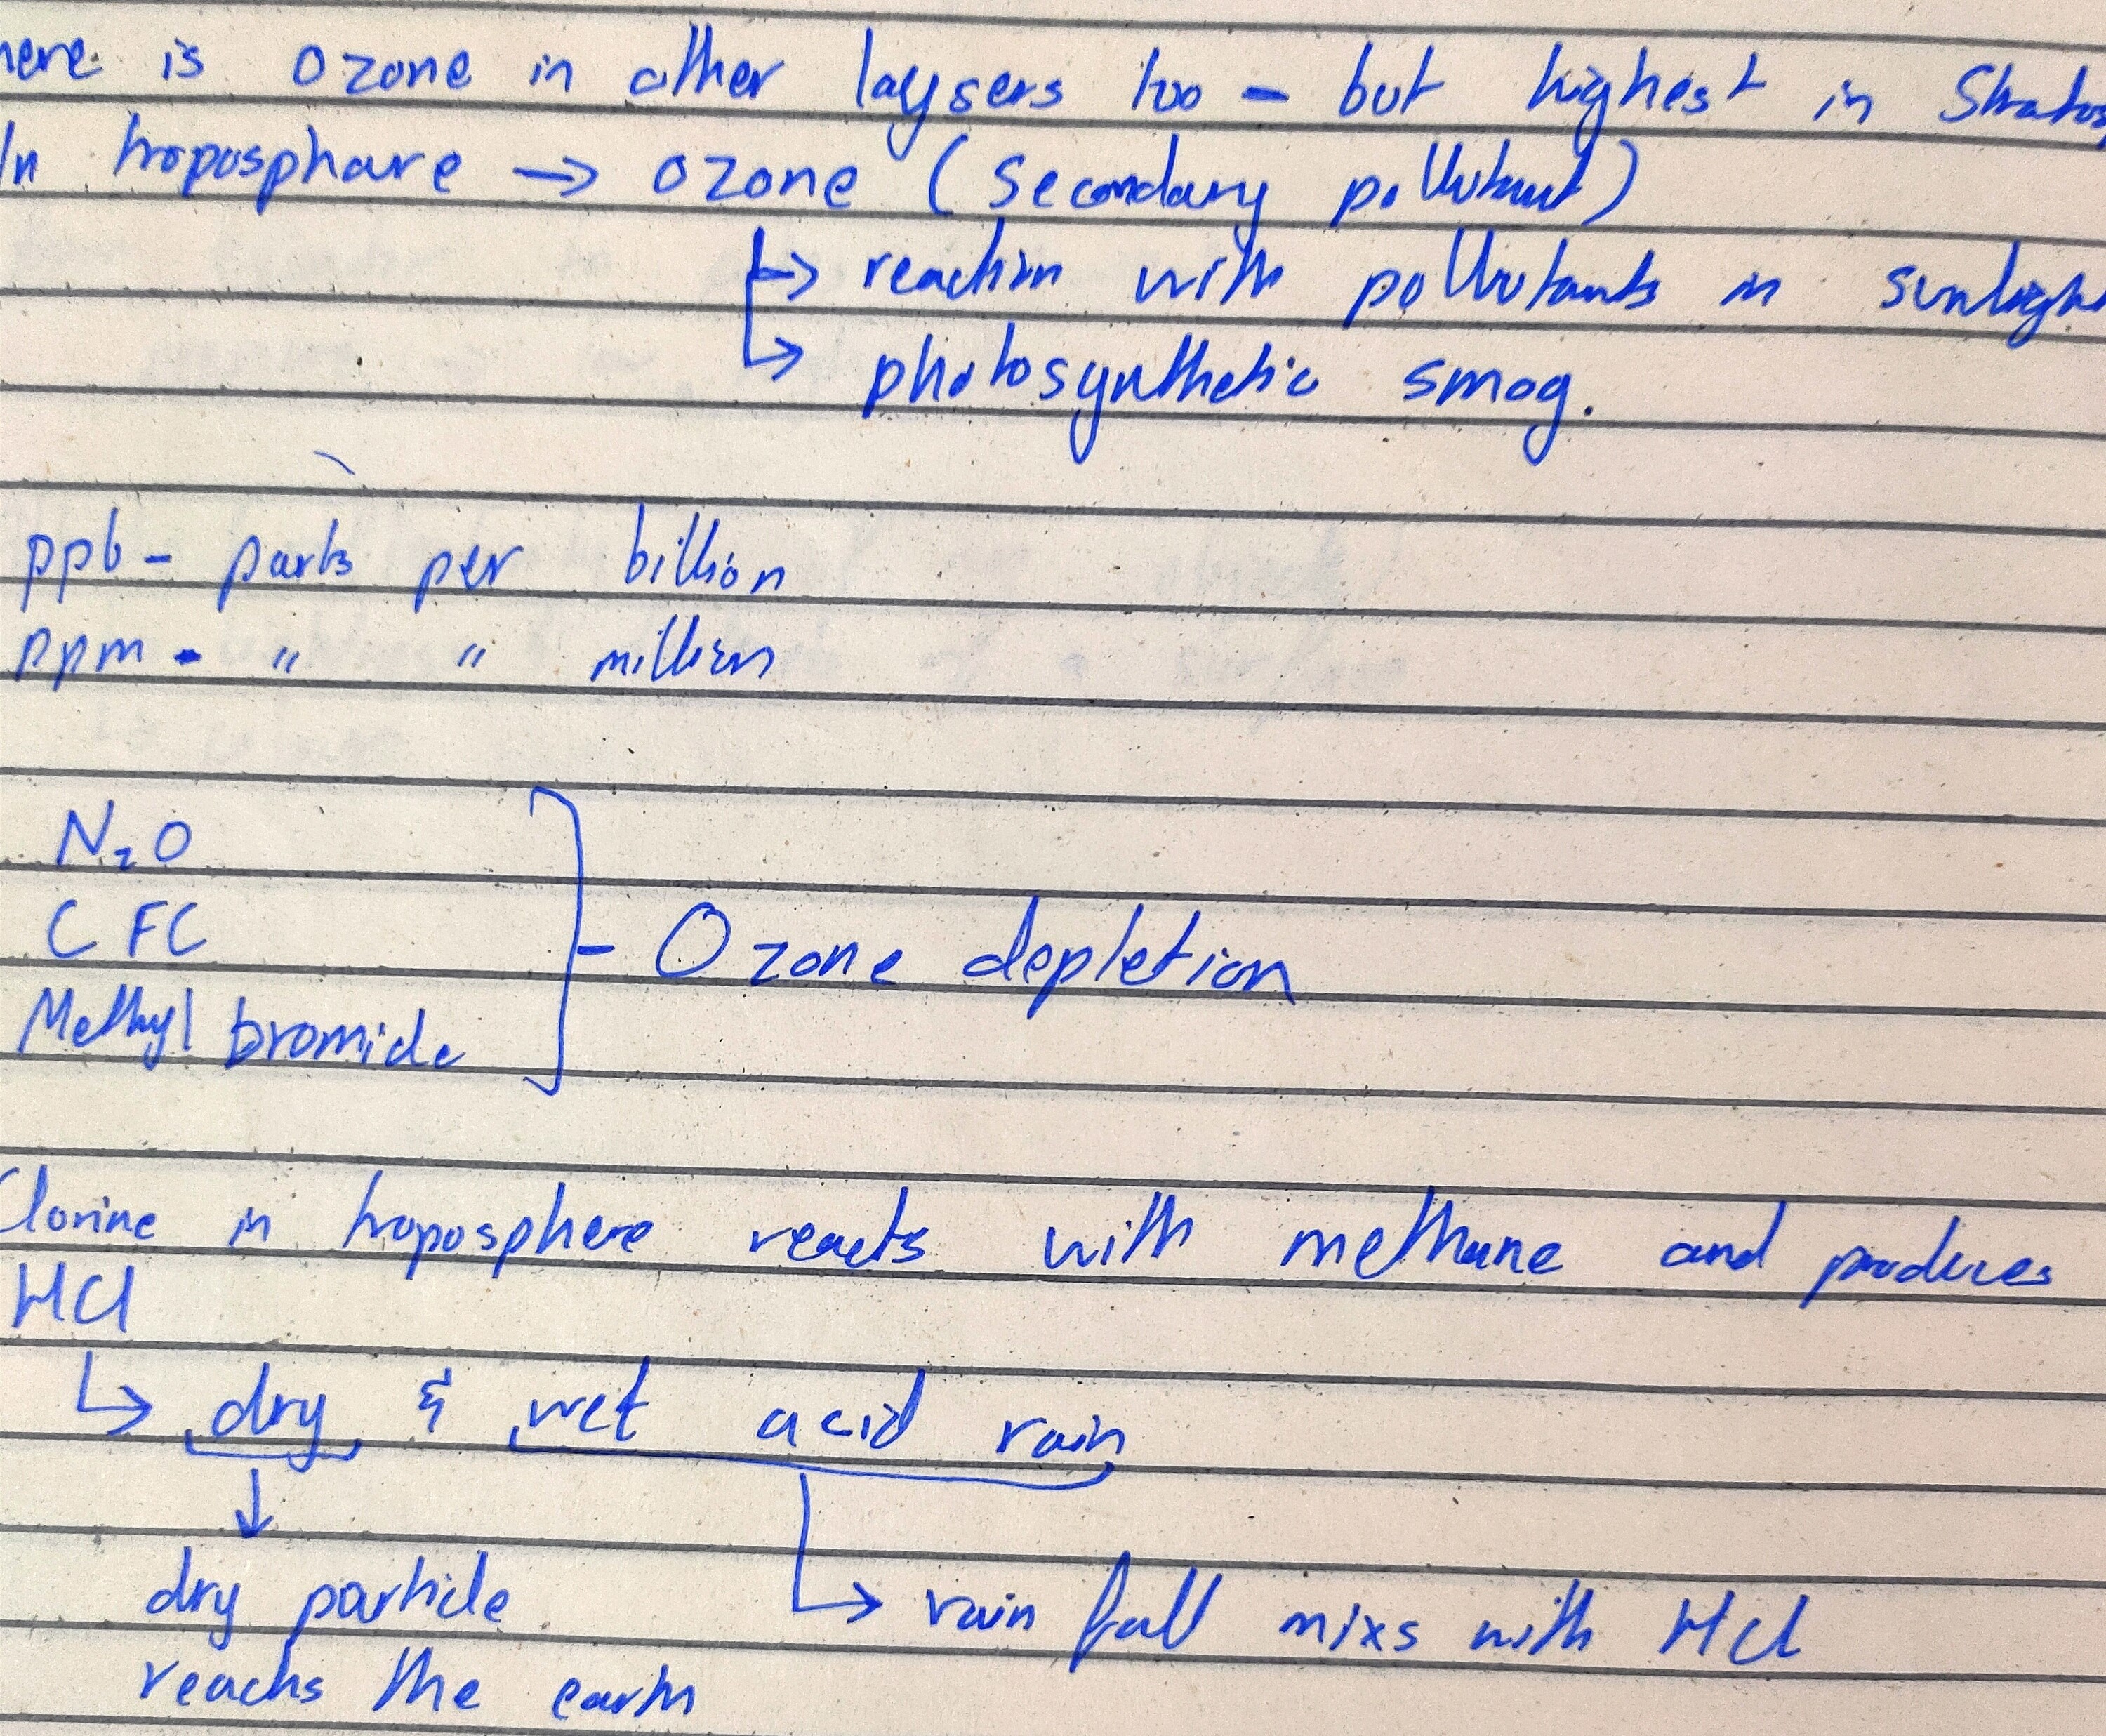 here is Ozone in other laysers too - but highest in Stratos
In troposphare → ozone (Secondary pollutant)
↳ reaction with pollutants in sunligh
↳ photosynthetic smog.
ppb - parts per billion
ppm - " " million
N₂O
CFC
Methyl bromide
- Ozone depletion
Clorine in troposphere reacts with methane and produces
HCl
↳ dry & wet acid rain
↓
dry particle ↳ rain fall mixs with HCl
reachs the earth